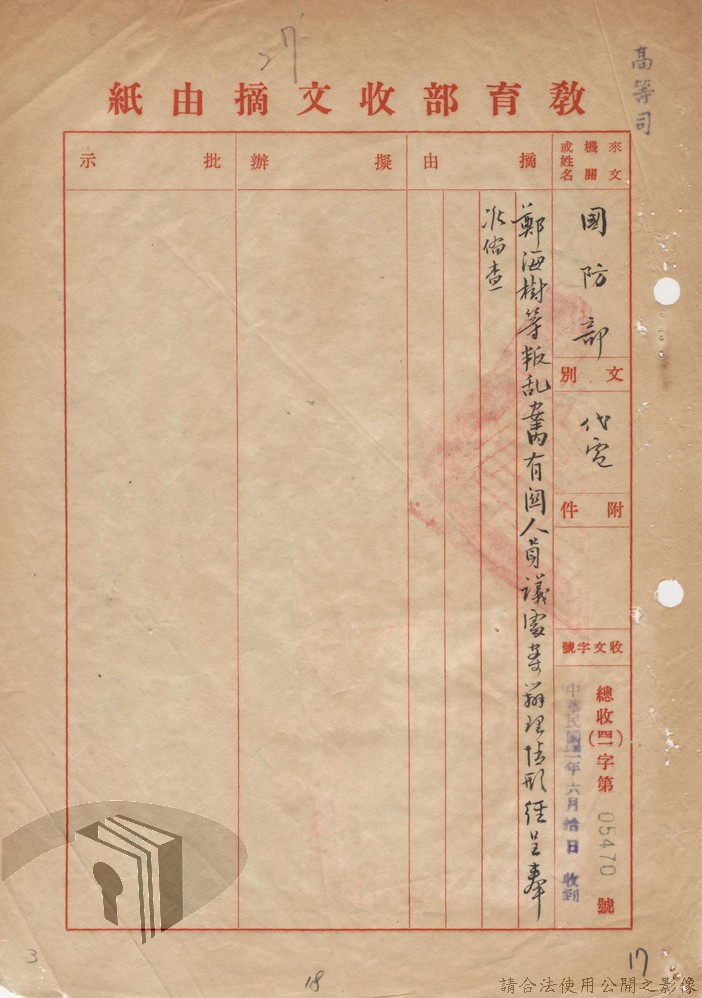 高等司
27
教育部收文摘由紙
來文機關或姓名
國防部
文別
代電
附件
收文字號
總收(四一)字第05470號
中華民國四一年六月拾日收到
摘由
鄭海樹等叛乱案內有關人員議處案辦理情形經呈奉
准備查
擬辦
批示
3
18
17
請合法使用公開之影像